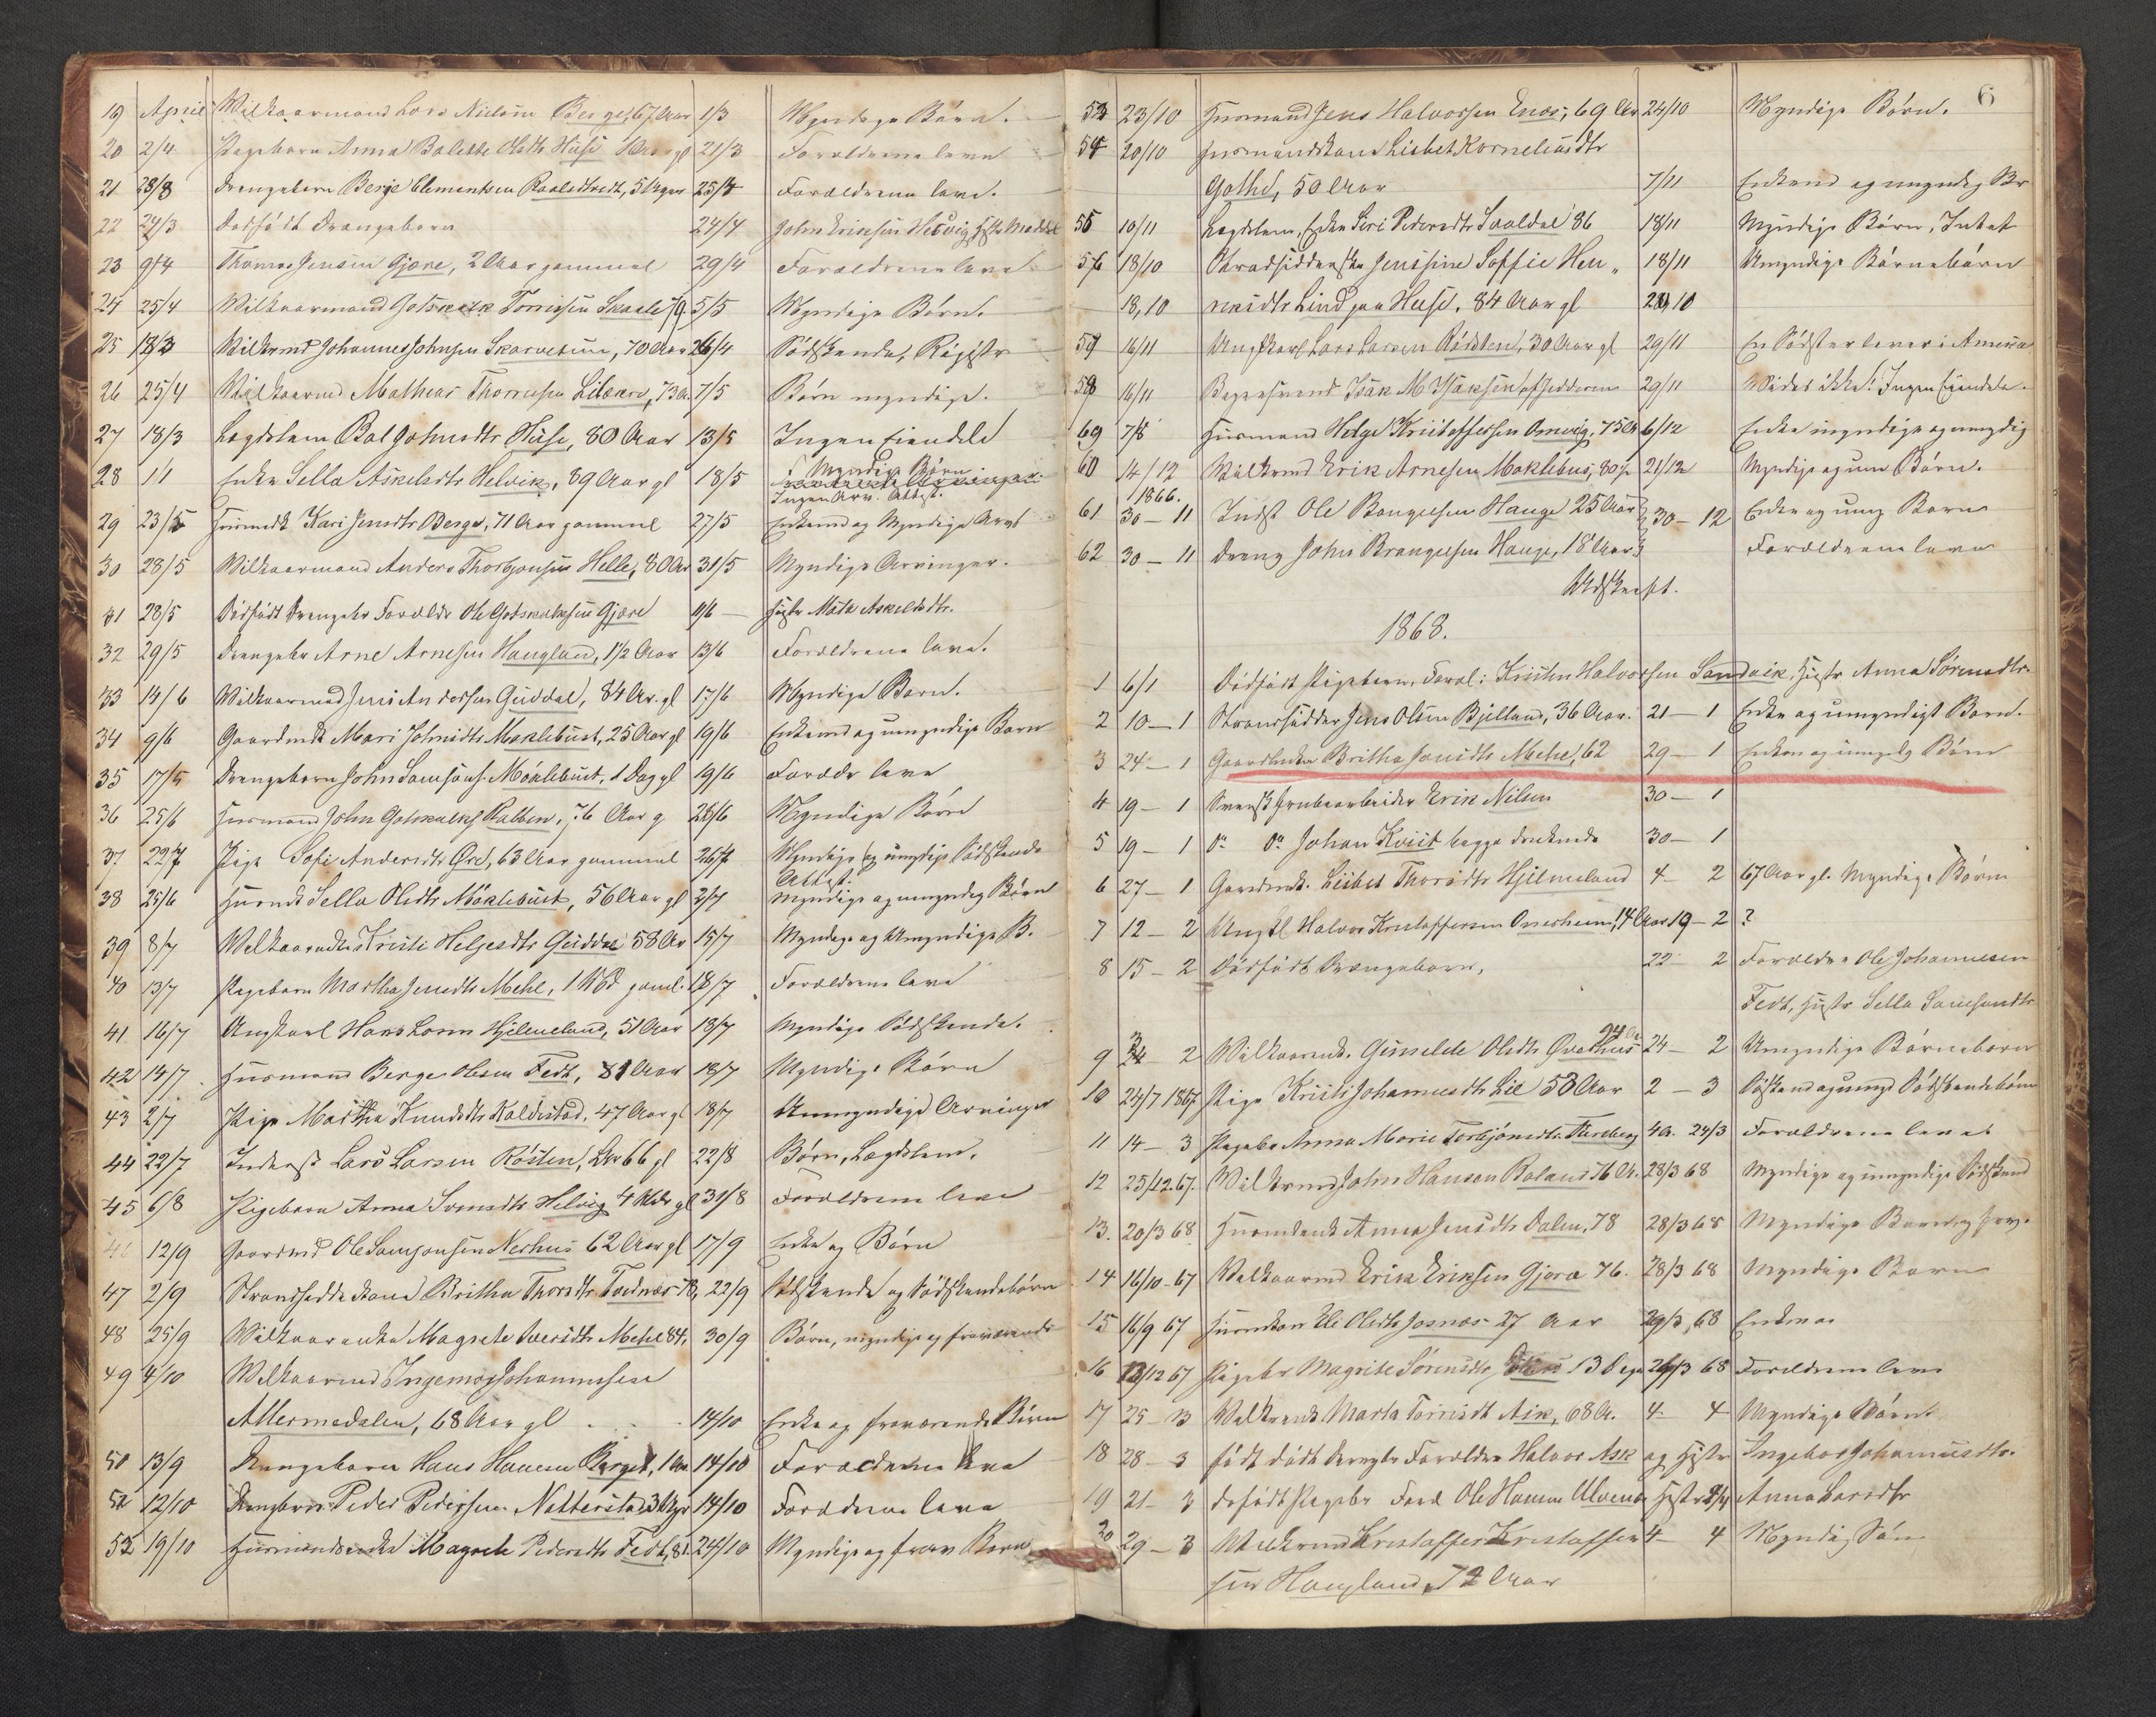 19 April Wilkaarmand Lars Nielsen Berge, 67 Aar 1/3 Myndige Børn.
20 2/4 Pigebarn Anna Bolette Olsdtr Huse gl 21/3 Forældrene leve
21 28/3 Drengebarn Berge Clementsen 5 Uger 25/4 Forældrene leve.
22 24/3 Dødfødt Drengebarn 24/4 John Eriksen Helvig, Hstr
23 9/4 Thomas Jensen Gjære, 2 Aar gammel 29/4 Forældrene leve
24 25/4 Wilkaarmand Gotskalk Tomesen Skaale 5/5 Myndige Børn.
25 18/3 Wilkrmd Johannes Johnsen Skarvetun, 70 Aar 26/4 Sødskende, Registr
26 25/4 Wilkaarmd Mathias Thomesen 73 A. 7/5 Børn myndige.
27 18/3 Lægdslem Johnsdtr Huse, 80 Aar 13/5 Ingen Eiendele
28 1/1 Enke Sella Askelsdtr Helvik, 89 Aar gl 18/5 Myndige Børn
Ingen Arv. Attest.
29 23/5 Kari Jensdtr Berge, 71 Aar gammel 27/5 Enkemd og Myndige Arv
30 28/5 Wilkaarmand Anders Thorbjønsen Helle, 80 Aar 31/5 Myndige Arvinger.
31 28/5 Dødfødt Drengebr Forældr Ole Gotskalksen Gjære 9/6 Hustr Mata Askelsdtr.
32 29/5 Drengebr Arne Arnesen Haugland, 1 1/2 Aar 13/6 Forældrene leve.
33 14/6 Wilkaarmd Jens Andersen Guddal, 84 Ar. gl 17/6 Myndige Børn.
34 9/6 Gaardmdk Mari Johnsdtr Møklebust, 25 Aar gl 19/6 Enkemd og umyndige Børn
35 17/5 Drengebarn John Samsons. Møklebust, 1 Dag gl 19/6 Forældr leve
36 25/6 Husmand John Gotskalks 76 Aar g 28/6 Myndige Børn
37 22/7 Pige Sofi Andersdtr Øre, 63 Aar gammel 26/7 Myndige og umyndige Sødskende
Attest.
38 25/6 Husmdk Sella Olsdtr Møklebust, 56 Aar gl 2/7 Myndige og umyndig Børn
39 8/7 Wilkaarmdks Kristi Helgesdtr Guddal 58 Ar 15/7 Myndige og Umyndige B.
40 13/7 Pigebarn Martha Jensdtr Mehl, 1 gaml. 18/7 Forældrene leve
41 16/7 Ungkarl Hans Larsen Hjelmeland, 51 Aar 18/7 Myndige Sødskende.
42 14/7 Husmand Berge Olsen Fedt, 81 Aar 18/7 Myndige Børn
43 2/7 Pige Martha Knudsdtr Kaldestad, 47 Aar gl 18/7 Umyndige Arvinger
44 22/7 Inderst Lars Larsen Røsten, Ar 66 gl 22/8 Børn, Lægdslem.
45 6/8 Pigebarn Anna Svensdtr Helvig 4 Mdr gl 31/8 Forældrene leve
46 12/9 Gaardmd Ole Samsonsen Nerhus 62 Aar gl 17/9 Enke og Børn
47 2/9 Strandsidderkone Britha Thorsdtr 78, 22/9 Sødskende og Sødskendebørn
48 25/9 Wilkaarsenke Magrete Iversdtr Mehl 84. 30/9 Børn, myndige og fraværende
49 4/10 Wilkaarmd Ingemor Johannessen
68 Aar gl 14/10 Enke og fraværende Børn
50 13/9 Drengebarn Hans Hansen Berget, 1 Aar 14/10 Forældrene leve
51 12/10 Drengebarn Peder Pedersen Netterstad 3 Uger 14/10 Forældrene leve
52 19/10 Husmandsenke Magrete Pedersdtr Fedt, 81. 24/10 Myndige og frav Børn
6
53 23/10 Husmand Jens Halvorsen Enæs, 69 Aar 24/10 Myndige Børn.
54 20/10 Husmandskone Lisbet Korneliusdtr
Gothe, 50 Aar 7/11 Enkemd og umyndig Br
55 10/11 Lægdslem, Enke Siri Pedersdtr Saaldal 86 18/11 Myndige Børn, Intet
56 18/10 Strandsidderske Jensine Soffie Hen„ 18/11 Umyndige Børnebørn
18,10 riksdtr Lind paa Huse, 84 Aar gl 28/10
57 16/11 Ungkarl Lars Larsen Rødsten, 30 Aar gl 29/11 En Sødster lever i Amerika
58 16/11 Isak M Isaksen af Jedderen 29/11 Vides ikke! Ingen Eiendele.
59 7/8 Husmand Helge Kristoffersen Omvig, 75 Ar 6/12 Enke myndige og umyndig
60 14/12 Wilkrmd Erik Arnesen Møklebus, 80 21/12 Myndige og um Børn.
1866.
61 30 – 11 Indst Ole Hauge 25 Aar 30 – 12 Enke og umg Børn
62 30 – 11 Dreng John Hauge, 18 Aar Forældrene leve
Udskrift.
1868.
1 6/1 Dødfødt Pigebarn, Foræl: Kristen Halvorsen Sandvik, Hustr Anna Sørensdtr
2 10 – 1 Strandsidder Jens Olsen Bjelland, 36 Aar. 21 – 1 Enke og umyndigt Barn.
3 24 – 1 Gaardenke Britha Jonsdtr Mehl, 62 29 – 1 Børn
4 19 – 1 Svensk Grubearbeider Erik Nilsen 30 – 1
5 19 – 1 Do Do Johan Kvist begge druknede 30 – 1
6 27 – 1 Gaardmk. Lisbet Thorsdtr Hjelmeland 4 – 2 67 Aar gl. Myndige Børn
7 12 – 2 Ungkl Halvor Kristoffersen Omerheim, 14 Aar 19 – 2 ?
8 15 – 2 Dødfødt Drengebarn, 22 – 2 Forældre Ole Johannesen
Fedt, Hustr Sella Samsonsdtr
9 2 Wilkaarenk. Gunnelde Olsdtr Øvrehus 94 Ar 24 – 2 Umyndige Børnebørn
10 24/7 1867 Pige Kristi Johannesdtr Lie 53 Aar 2 – 3 Søskend og umyd Sødskendebørn
11 14 – 3 Pigebr Anna Marie Torbjønsdtr 4 A. 24/3 Forældrene lever
12 25/12.67. Wilkrmd John Hansen 76 Ar. 28/3 68 Myndige og umyndige Sødskend
13. 20/3 68 Husmdenk Anna Jensdtr Dalen, 78 28/3 68 Myndige Børn og frv.
14 16/10-67 Wilkaarmd Erik Eriksen Gjæra 76. 28/3 68 Myndige Børn
15 16/9 67 Husmdkon Eli Olsdtr Josnæs 27 Aar 29/3, 68 Enkman
16 13/12 67 Pigebr Magrete Sørensdtr 13 Dage 29/3 68 Forældrene leve
17 25 – 3 Wilkrenk Marta Torrisdt Aik, 68 A. 4 – 4 Myndige Børn.
18 28 – 3 født dødt Drengbr Forældre Halvor Ask og Hstr Ingebor Johannesdtr.
19 21 – 3 døfødt Pigebr Foræl Ole Hansen Ulvenæ Hstr Anna Larsdtr
20 29 – 3 Wilkrmd Kristoffer Kristoffer 4 – 4 Myndig Søn
sen Haugland, 72 Aar